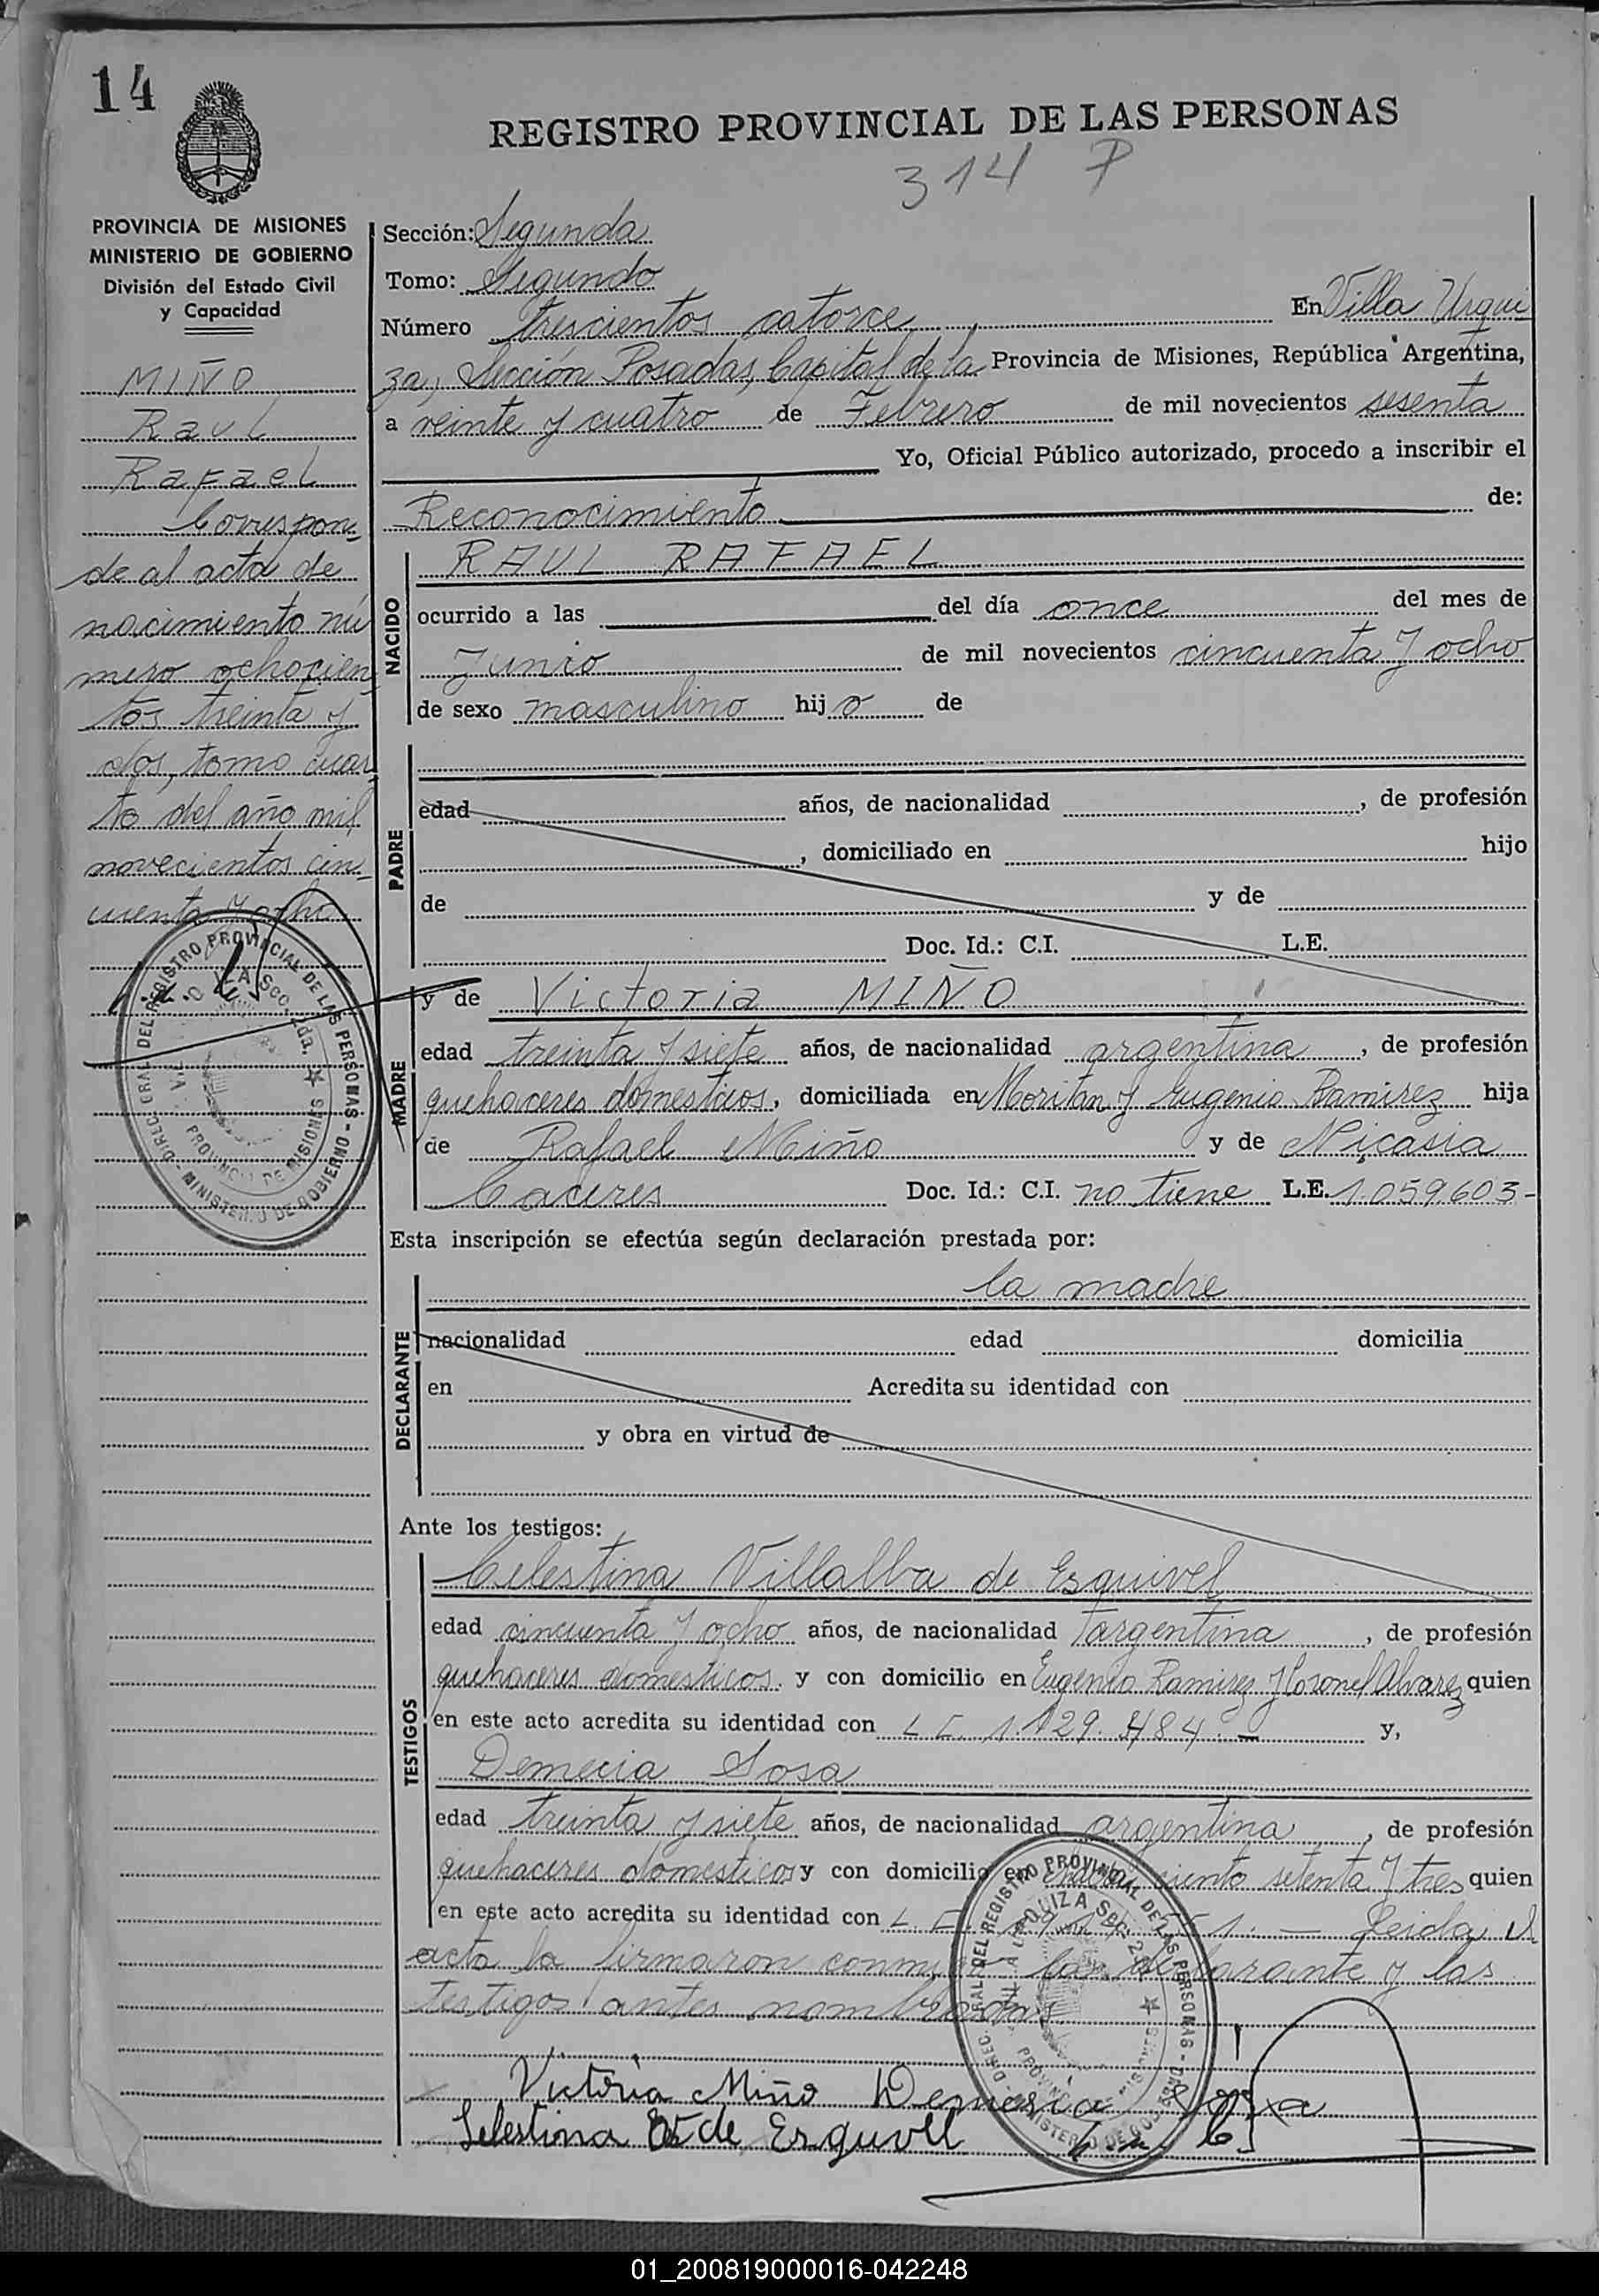 14
REGISTRO PROVINCIAL DE LAS PERSONAS
314 P
PROVINCIA DE MISIONES
MINISTERIO DE GOBIERNO
División del Estado Civil
y Capacidad
MIÑO
Raul
Rafael
Correspon-
de al acta de
nacimiento nú
mero ochocien
tos treinta y
dos, tomo cuar
to del año mil
novecientos cin-
cuenta y ocho
Sección: Segunda
Tomo: Segundo
Número trescientos catorce En Villa Urqui
za, Sección Posadas, Capital de la Provincia de Misiones, República Argentina,
a veinte y cuatro de Febrero de mil novecientos sesenta
Yo, Oficial Público autorizado, procedo a inscribir el
Reconocimiento de:
NACIDO
RAUL RAFAEL
ocurrido a las del día once del mes de
Junio de mil novecientos cincuenta y ocho
de sexo masculino hijo de
PADRE
edad años, de nacionalidad , de profesión
, domiciliado en hijo
de y de
Doc. Id.: C.I. L.E.
MADRE
y de Victoria MIÑO
edad treinta y siete años, de nacionalidad argentina, de profesión
quehaceres domesticos, domiciliada en Moritan y Eugenio Ramirez hija
de Rafael Miño y de Nicasia
Caceres Doc. Id.: C.I. no tiene L.E. 1.059.603-
Esta inscripción se efectúa según declaración prestada por:
la madre
DECLARANTE
nacionalidad edad domicilia
en Acredita su identidad con
y obra en virtud de
Ante los testigos:
TESTIGOS
Celestina Villalba de Esquivel
edad cincuenta y ocho años, de nacionalidad argentina, de profesión
quehaceres domesticos y con domicilio en Eugenio Ramirez y Coronel Alvarez quien
en este acto acredita su identidad con L C 1.129.484.- y,
Demecia Sosa
edad treinta y siete años, de nacionalidad argentina, de profesión
quehaceres domesticos y con domicilio en ciento setenta y tres quien
en este acto acredita su identidad con L C Leida el
acta la firmaron conmigo la declarante y las
testigos antes nombradas
Victoria Miño Demesia Sosa
Selestina de Esquivel
DIREC. GRAL. DEL REGISTRO PROVINCIAL DE LAS PERSONAS - MINISTERIO DE GOBIERNO
PROVINCIA DE MISIONES
01_200819000016-042248